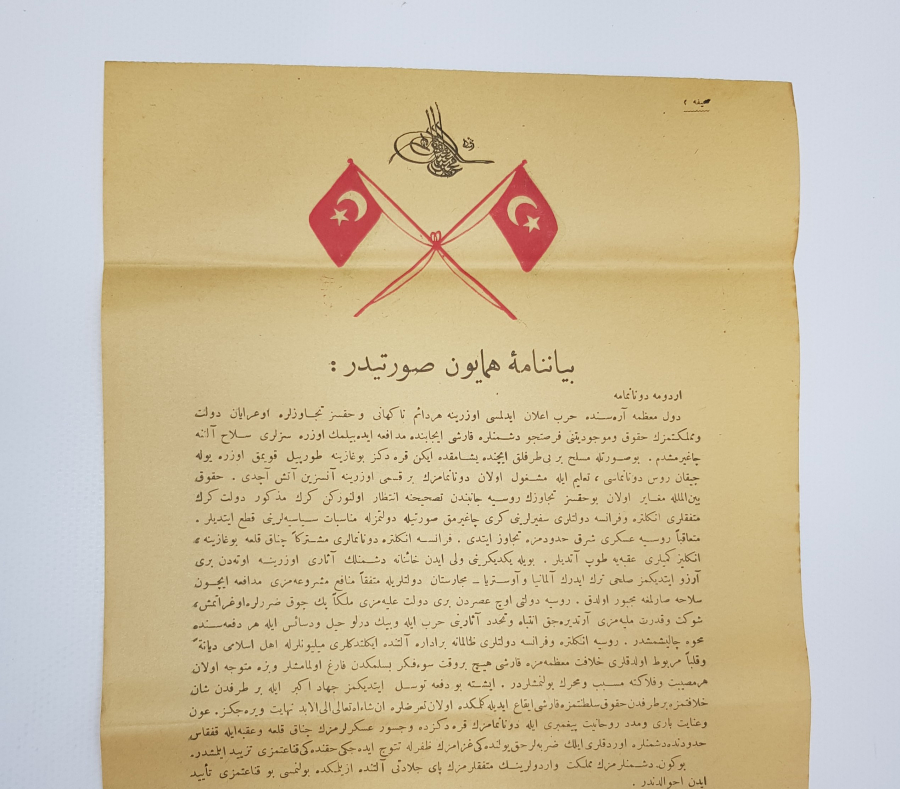 صحیفه ٢
بیاننامهٔ همایون صورتیدر :
اردومه دونانمامه
دول معظمه آره‌سنده حرب اعلان ایدلمسی اوزرینه هردائم ناکهانی و حقسز تجاوزلره اوغرایان دولت
ومملکتمزك حقوق وموجودیتنی فرصتجو دشمنلره قارشی ایجابنده مدافعه ایده‌بیلمك اوزره سزلری سلاح آلتنه
چاغیرمشدم . بوصورتله مسلح بر بی‌طرفلق ایچنده یشامقده ایکن قره دکز بوغازینه طورپیل قویمق اوزره یوله
چیقان روس دونانماسی ، تعلیم ایله مشغول اولان دونانمامزك بر قسمی اوزرینه آنسزین آتش آچدی . حقوق
بین‌المللله مغایر اولان بوحقسز تجاوزك روسیه جانبندن تصحیحنه انتظار اولنورکن کرك مذکور دولت کرك
متفقلری انکلتره وفرانسه دولتلری سفیرلرینی کری چاغیرمق صورتیله دولتمزله مناسبات سیاسیه‌لرینی قطع ایتدیلر .
متعاقباً روسیه عسکری شرق حدودمزه تجاوز ایتدی . فرانسه انکلتره دونانمالری مشترکاً چناق قلعه بوغازینه ،
انکلیز کمیلری عقبه‌یه طوپ آتدیلر . بویله یکدیکرینی ولی ایدن خائنانه دشمنلك آثاری اوزرینه اوته‌دن بری
آرزو ایتدیکمز صلحی ترك ایدرك آلمانیا وآوستریا ـ مجارستان دولتلریله متفقاً منافع مشروعه‌مزی مدافعه ایچون
سلاحه صارلمغه مجبور اولدق . روسیه دولتی اوچ عصردن بری دولت علیه‌مزی ملکاً پك چوق ضررلره اوغراتمش ،
شوکت وقدرت ملیه‌مزی آرتدیره‌جق انتباه وتجدد آثارینی حرب ایله وبیك درلو حیل ودسائس ایله هر دفعه‌سنده
محوه چالیشمشدر . روسیه انکلتره وفرانسه دولتلری ظالمانه براداره آلتنده ایکلتدکلری میلیونلرله اهل اسلامی دیانةً
وقلباً مربوط اولدقلری خلافت معظمه‌مزه قارشی هیچ بروقت سوءفکر بسلمکدن فارغ اولمامشلر وبزه متوجه اولان
هرمصیبت وفلاکته مسبب ومحرك بولنمشلردر . ایشته بو دفعه توسل ایتدیکمز جهاد اکبر ایله بر طرفدن شان
خلافتمزه برطرفدن حقوق سلطنتمزه قارشی ایقاع ایدیله کلمکده اولان تعرضلره ان‌شاءالله‌تعالی الی‌الابد نهایت ویره‌جکز . عون
وعنایت باری ومدد روحانیت پیغمبری ایله دونانمامزك قره دکزده وجسور عسکرلرمزك چناق قلعه وعقبه‌ایله قفقاس
حدودنده دشمنلره اوردقلری ایلك ضربه‌لر حق یولنده‌کی غزامزك ظفرله تتوج ایده‌جکی حقنده‌کی قناعتمزی تزیید ایلمشدر .
بوکون دشمنلرمزك مملکت واردولرینك متفقلرمزك پای جلادتی آلتنده ازیلمکده بولنمسی بو قناعتمزی تأیید
ایدن احوالدندر .